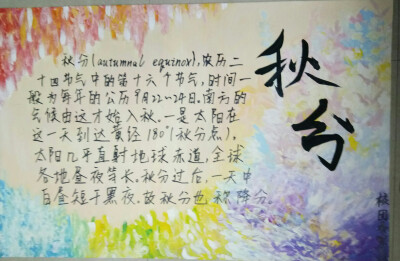 秋分
秋分(autumnal equinox),农历二
十四节气中的第十六个节气,时间一
般为每年的公历9月22~24日.南方的
气候由这才始入秋.一是太阳在
这一天到达黄经180°(秋分点).
太阳几乎直射地球赤道,全球
各地昼夜等长.秋分过后,一天中
白昼短于黑夜.故秋分也称降分.